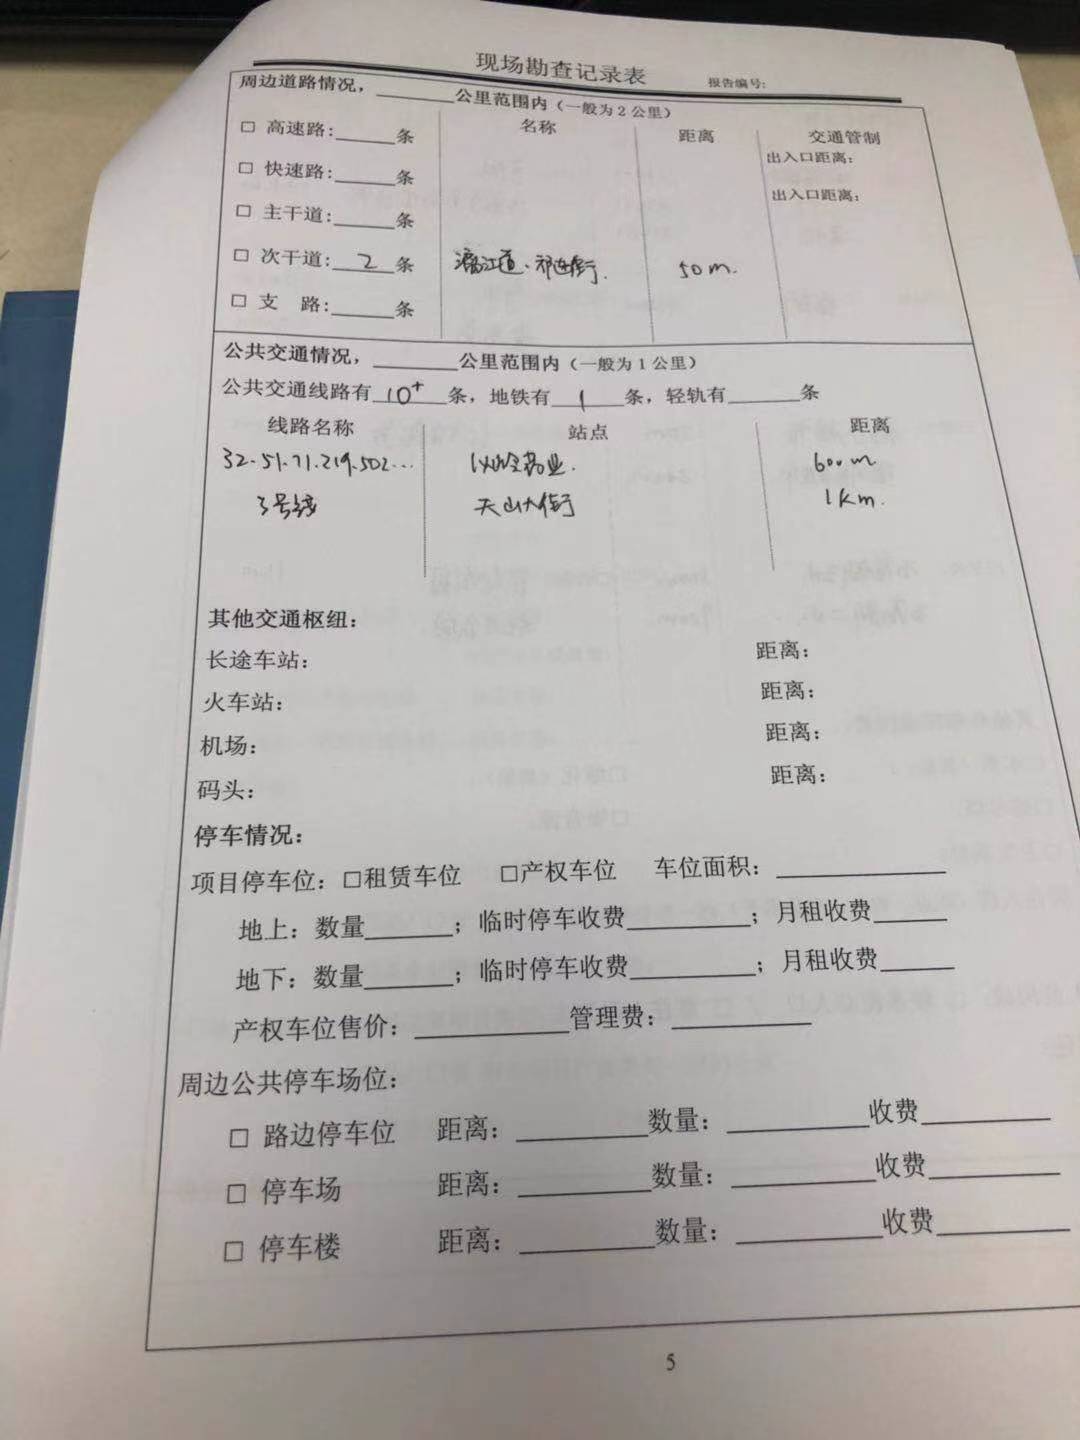 现场勘查记录表 报告编号:
周边道路情况，______公里范围内（一般为2公里）
名称 距离 交通管制
□ 高速路:_____条 出入口距离：
□ 快速路:_____条 出入口距离：
□ 主干道:_____条
□ 次干道: 2 条 漓江道、祁连街. 50m.
□ 支 路:_____条
公共交通情况，______公里范围内（一般为1公里）
公共交通线路有 10+ 条，地铁有 1 条，轻轨有______条
线路名称 站点 距离
32.51.71.219.502... 以岭药业. 600m
3号线 天山大街 1km.
其他交通枢纽：
长途车站： 距离：
火车站： 距离：
机场： 距离：
码头： 距离：
停车情况：
项目停车位：□租赁车位 □产权车位 车位面积：____________
地上：数量______；临时停车收费________；月租收费_____
地下：数量______；临时停车收费________；月租收费_____
产权车位售价：__________管理费：_________
周边公共停车场位：
□ 路边停车位 距离：_________数量：_________收费________
□ 停车场 距离：_________数量：_________收费________
□ 停车楼 距离：_________数量：_________收费________
5